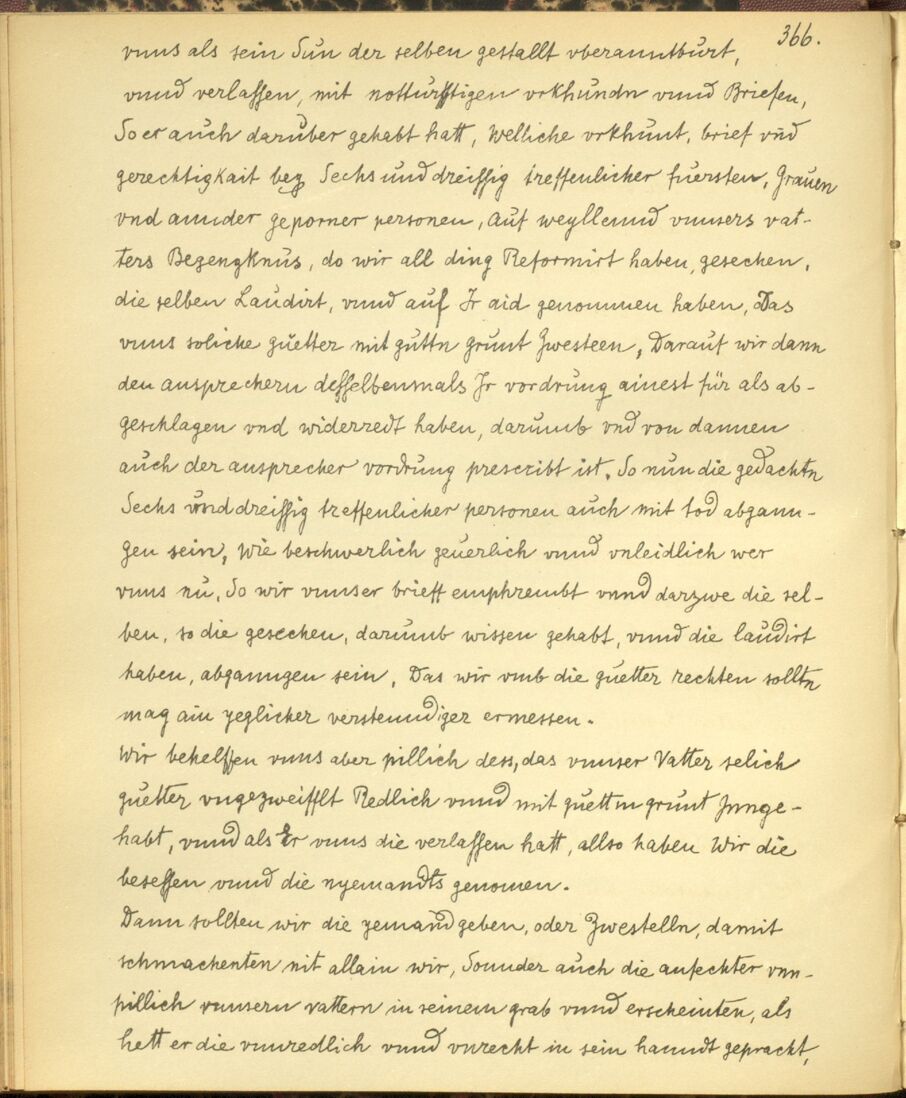 366.
vnns als sein Sun der selben gestallt vberanntburt,
vnnd verlassen, mit notturfftigen vrkhundn vnnd Briefen,
So er auch darüber gehabt hatt, Welliche vrkhunt, brief vnd
gerechtigkait bey Sechs und dreissig treffenlicher fuersten, Grauen
vnd annder geporner personen, Auf weyllennd vnnsers vat-
ters Begengknus, do wir all ding Reformirt haben, gesechen,
die selben Laudirt, vnnd auf Jr aid genommen haben, Das
vnns soliche güetter mit guttn grunt Zwesteen, Darauf wir dann
den ansprechern desselbensmals Jr vordrung ainest für als ab-
geschlagen vnd widerredt haben, darumb vnd von dannen
auch der ansprecher vordrung prescribt ist. So nun die gedachtn
Sechs vnnd dreissig treffenlicher personen auch mit tod abgann-
gen sein, Wie beschwerlich geuerlich vnnd vnleidlich wer
vnns nu, So wir vnnser brieff emphrembt vnnd darzwe die sel-
ben, so die gesechen, darumb wissen gehabt, vnnd die laudirt
haben, abganngen sein, Das wir vmb die guetter rechten solltn
mag ain yeglicher verstenndiger ermessen.
Wir behelffen vnns aber pillich dess, das vnnser Vatter selich
guetter vngezweifflt Redlich vnnd mit guettm grunt Jnnge-
habt, vnnd als Er vnns die verlassen hatt, allso haben Wir die
besessen vnnd die nyemandts genomen.
Dann sollten wir die yemand geben, oder Zwestelln, damit
schmachenten nit allain wir, Sonnder auch die anfechter vnn-
pillich vnnsern vattern in seinem grab vnnd erscheinten, als
hett er die vnnredlich vnnd vnrecht in sein hanndt gepracht,